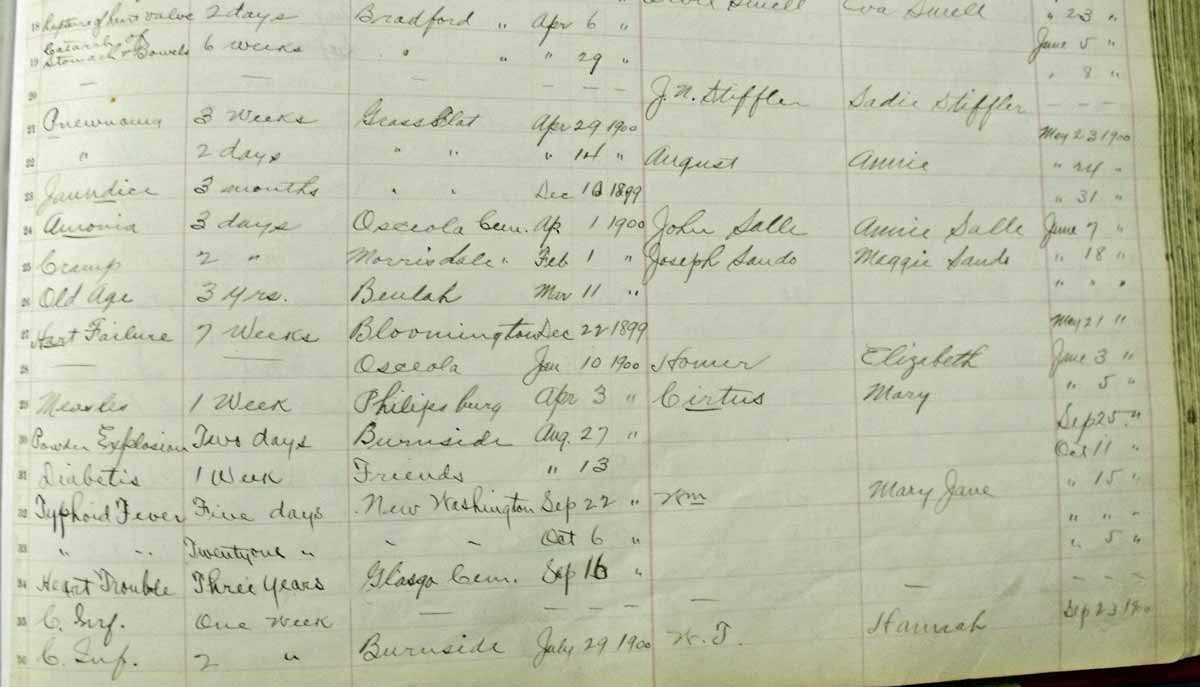 18 Rupture of hart valve 2 days Bradford " Apr 6 " Smell Eva Smell " 23 "
19 Catarrh of Stomach & Bowels 6 weeks " " " 29 " June 5 "
20 — — — — — J. N. Stiffler Sadie Stiffler " 8 "
21 Pnewnonia 3 Weeks Grass Flat Apr 29 1900 — — —
22 " 2 days " " " 14 " August Annie May 23 1900
23 Jaundice 3 months " " Dec 10 1899 " 24 "
" 31 "
24 3 days Osceola Cem. Ap 1 1900 John Salle Annie Salle June 7 "
25 Cramp 2 " Morrisdale " Feb 1 " Joseph Sando Meggie Sando " 18 "
26 Old Age 3 Yrs. Beulah Mar 11 " " " "
27 Hart Failure 7 Weeks Bloomington Dec 22 1899 May 21 "
28 — — Osceola Jan 10 1900 Homer Elizabeth June 3 "
29 Measles 1 Week Philipsburg Apr 3 " Cirtus Mary " 5 "
30 Powder Explosion Two days Burnside Aug. 27 " Sep 25 "
31 Diabetis 1 Week Friends " 13 Oct 11 "
32 Typhoid Fever Five days New Washington Sep 22 " Wm Mary Jane " 15 "
33 " " Twentyone " " " Oct 6 " " " "
34 Heart Trouble Three Years Glasgo Cem. Sep 16 " " 5 "
35 C. Inf. One Week — — — — — — — — —
36 C. Inf. 2 " Burnside July 29 1900 W. T. Hannah Sep 23 1900